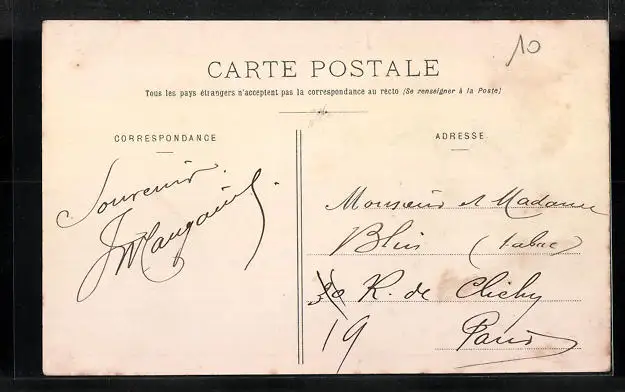 10
CARTE POSTALE
Tous les pays étrangers n'acceptent pas la correspondance au recto (Se renseigner à la Poste)
CORRESPONDANCE
Souvenir.
ADRESSE
Monsieur et Madame
Blin (tabac)
30 R. de Clichy
19 Paris